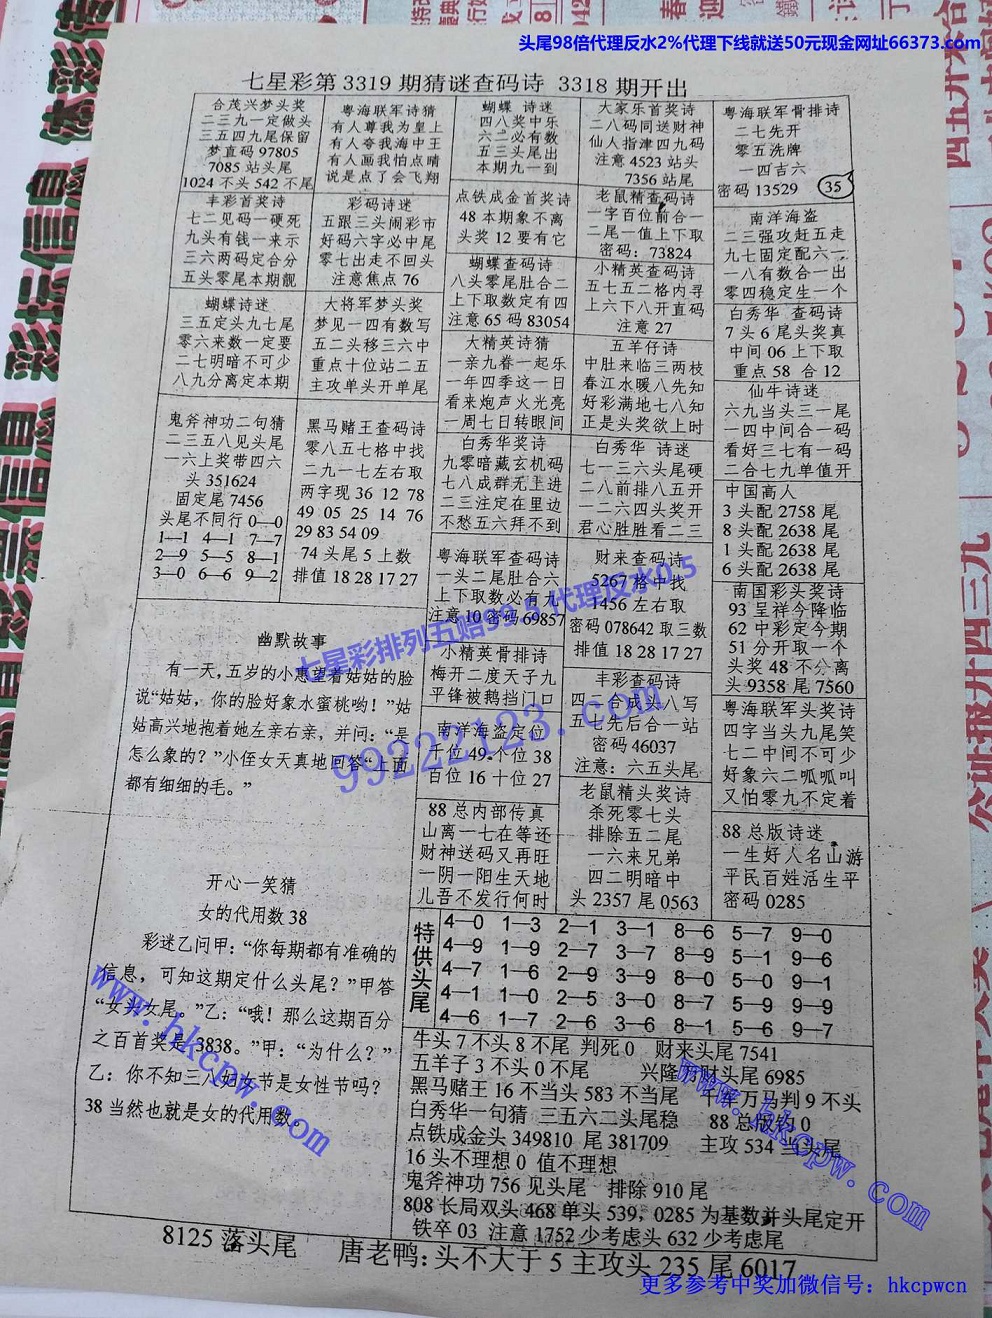 头尾98倍代理反水2%代理下线就送50元现金网址66373.com
七星彩第3319期猜谜查码诗 3318期开出
合茂兴梦头奖
二三九一定做头
三五四九尾保留
梦直码97805
7085站头尾
1024不头542不尾
粤海联军诗猜
有人尊我为皇上
有人夸我海中王
有人画我怕点晴
说是点了会飞翔
蝴蝶 诗迷
四八奖中乐
六二必有数
五三头尾出
本期九一到
大家乐首奖诗
二八码同送财神
仙人指津四九码
注意4523站头
7356站尾
粤海联军骨排诗
二七先开
零五洗牌
一四吉六
密码13529
35
丰彩首奖诗
七二见码一硬死
九头有钱一来示
三六两码定合分
五头零尾本期靓
彩码诗迷
五跟三头闹彩市
好码六字必中尾
零七出走不回头
注意焦点76
点铁成金首奖诗
48本期象不离
头奖12要有它
老鼠精查码诗
一字百位前合一
二尾一值上下取
密码:73824
南洋海盗
二三强攻赶五走
九七固定配六一
一八有数合一出
零四稳定生一个
蝴蝶查码诗
八头零尾肚合二
上下取数定有四
注意65码83054
小精英查码诗
五七五二格内寻
上六下八开直码
注意27
蝴蝶诗迷
三五定头九七尾
零六来数一定要
二七明暗不可少
八九分离定本期
大将军梦头奖
梦见一四有数写
五二头移三六中
重点十位站二五
主攻单头开单尾
白秀华 查码诗
7头6尾头奖真
中间06上下取
重点58 合12
大精英诗猜
一亲九眷一起乐
一年四季这一日
看来炮声火光亮
一周七日转眼间
五羊仔诗
中肚来临三两枝
春江水暖八先知
好彩满地七八知
正是头奖欲上时
仙牛诗迷
六九当头三一尾
一四中间合一码
看好三七有一码
二合七九单值开
鬼斧神功二句猜
二三五八见头尾
一六上奖带四六
头351624
固定尾7456
头尾不同行0—0
1—1 4—1 7—7
2—9 5—5 8—1
3—0 6—6 9—2
黑马赌王查码诗
零八五七格中找
二九一七左右取
两字现36 12 78
49 05 25 14 76
29 83 54 09
74头尾5上数
排值18 28 17 27
白秀华奖诗
九零暗藏玄机码
七八成群无上进
二三注定在里边
不愁五六拜不到
白秀华 诗迷
七一三六头尾硬
二八前排八五开
一二六四头奖开
君心胜胜看二三
中国高人
3头配2758尾
8头配2638尾
1头配2638尾
6头配2638尾
粤海联军查码诗
一头二尾肚合六
上下取数必有九
注意10密码69857
财来查码诗
5267格中找
1456左右取
密码078642取三数
排值18 28 17 27
南国彩头奖诗
93呈祥今降临
62中彩定今期
51分开取一个
头奖48不分离
头9358尾7560
幽默故事
有一天,五岁的小惠望着姑姑的脸
说“姑姑,你的脸好象水蜜桃哟!”姑
姑高兴地抱着她左亲右亲,并问:“是
怎么象的?”小侄女天真地回答“上面
都有细细的毛。”
七星彩排列五赔99.5代理反水0.5
99222123.com
小精英骨排诗
梅开二度天子九
平锋被鹅挡门口
丰彩查码诗
四二合成头八写
五七先后合一站
密码46037
注意:六五头尾
粤海联军头奖诗
四字当头九尾笑
七二中间不可少
好象六二呱呱叫
又怕零九不定着
南洋海盗定位
千位49个位38
百位16十位27
老鼠精头奖诗
杀死零七头
排除五二尾
一六来兄弟
四二明暗中
头2357尾0563
88总内部传真
山离一七在等还
财神送码又再旺
一阴一阳生天地
儿吾不发行何时
88总版诗迷
一生好人名山游
平民百姓活生平
密码0285
开心一笑猜
女的代用数38
彩迷乙问甲:“你每期都有准确的
信息,可知这期定什么头尾?”甲答
“女头女尾。”乙:“哦!那么这期百分
之百首奖是3838。”甲:“为什么?”
乙:你不知三八妇女节是女性节吗?
38当然也就是女的代用数。
www.hkcpw.com
特供头尾
4—0 1—3 2—1 3—1 8—6 5—7 9—0
4—9 1—9 2—7 3—7 8—9 5—1 9—6
4—7 1—6 2—9 3—9 8—0 5—0 9—1
4—1 1—0 2—5 3—0 8—7 5—9 9—9
4—6 1—7 2—6 3—6 8—1 5—6 9—7
牛头7不头8不尾 判死0 财来头尾7541
五羊子3不头0不尾 兴隆财头尾6985
黑马赌王16不当头583不当尾 千军万马判9不头
白秀华一句猜 三五六二头尾稳 88总版钓0
点铁成金头349810 尾381709 主攻534当头尾
16头不理想0 值不理想
鬼斧神功756见头尾 排除910尾
808长局双头468单头539,0285为基数并头尾定开
铁卒03 注意1752少考虑头632少考虑尾
www.hkcpw.com
8125落头尾 唐老鸭:头不大于5主攻头235尾6017
更多参考中奖加微信号:hkcpwcn